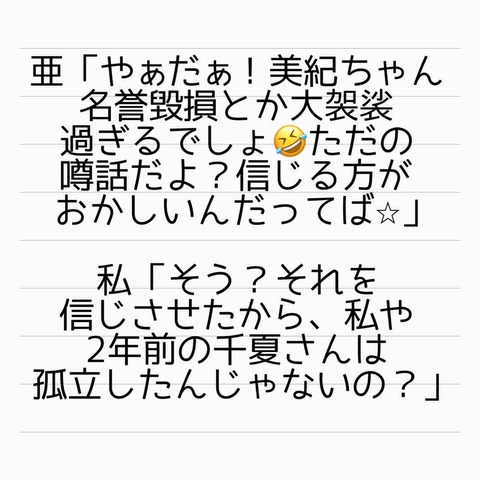 亜「やぁだぁ！美紀ちゃん
名誉毀損とか大袈裟
過ぎるでしょ🤣ただの
噂話だよ？信じる方が
おかしいんだってば☆」
私「そう？それを
信じさせたから、私や
2年前の千夏さんは
孤立したんじゃないの？」